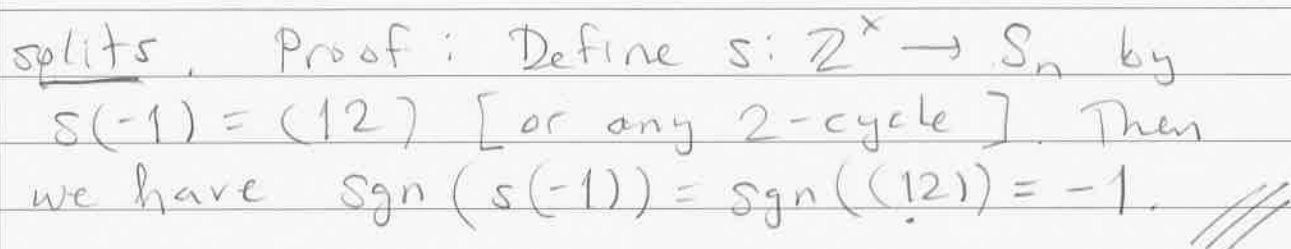 splits. Proof: Define s: ℤ^× → S_n by
s(-1) = (12) [or any 2-cycle]. Then
we have sgn(s(-1)) = sgn((12)) = -1. ///